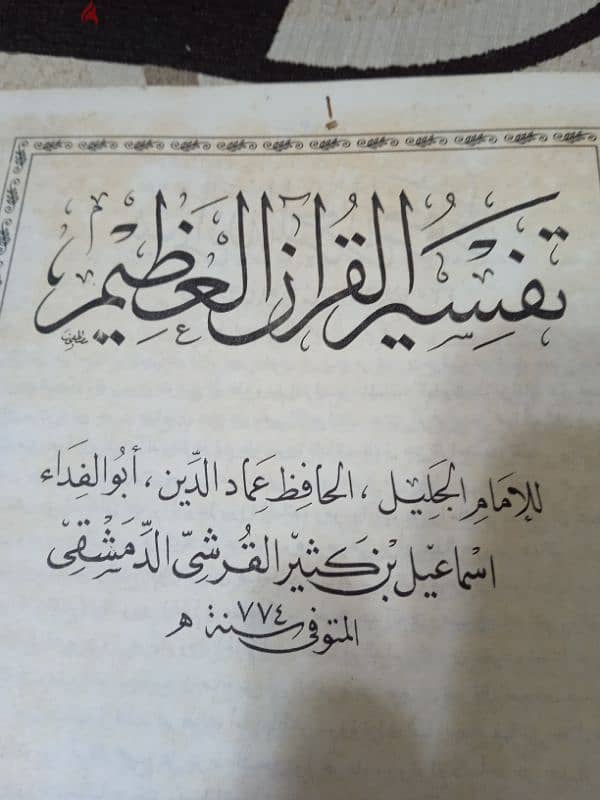 تفسير القرآن العظيم
للإمام الجليل ، الحافظ عماد الدين ، أبو الفداء
اسماعيل بن كثير القرشي الدمشقي
المتوفى سنة ٧٧٤ ه